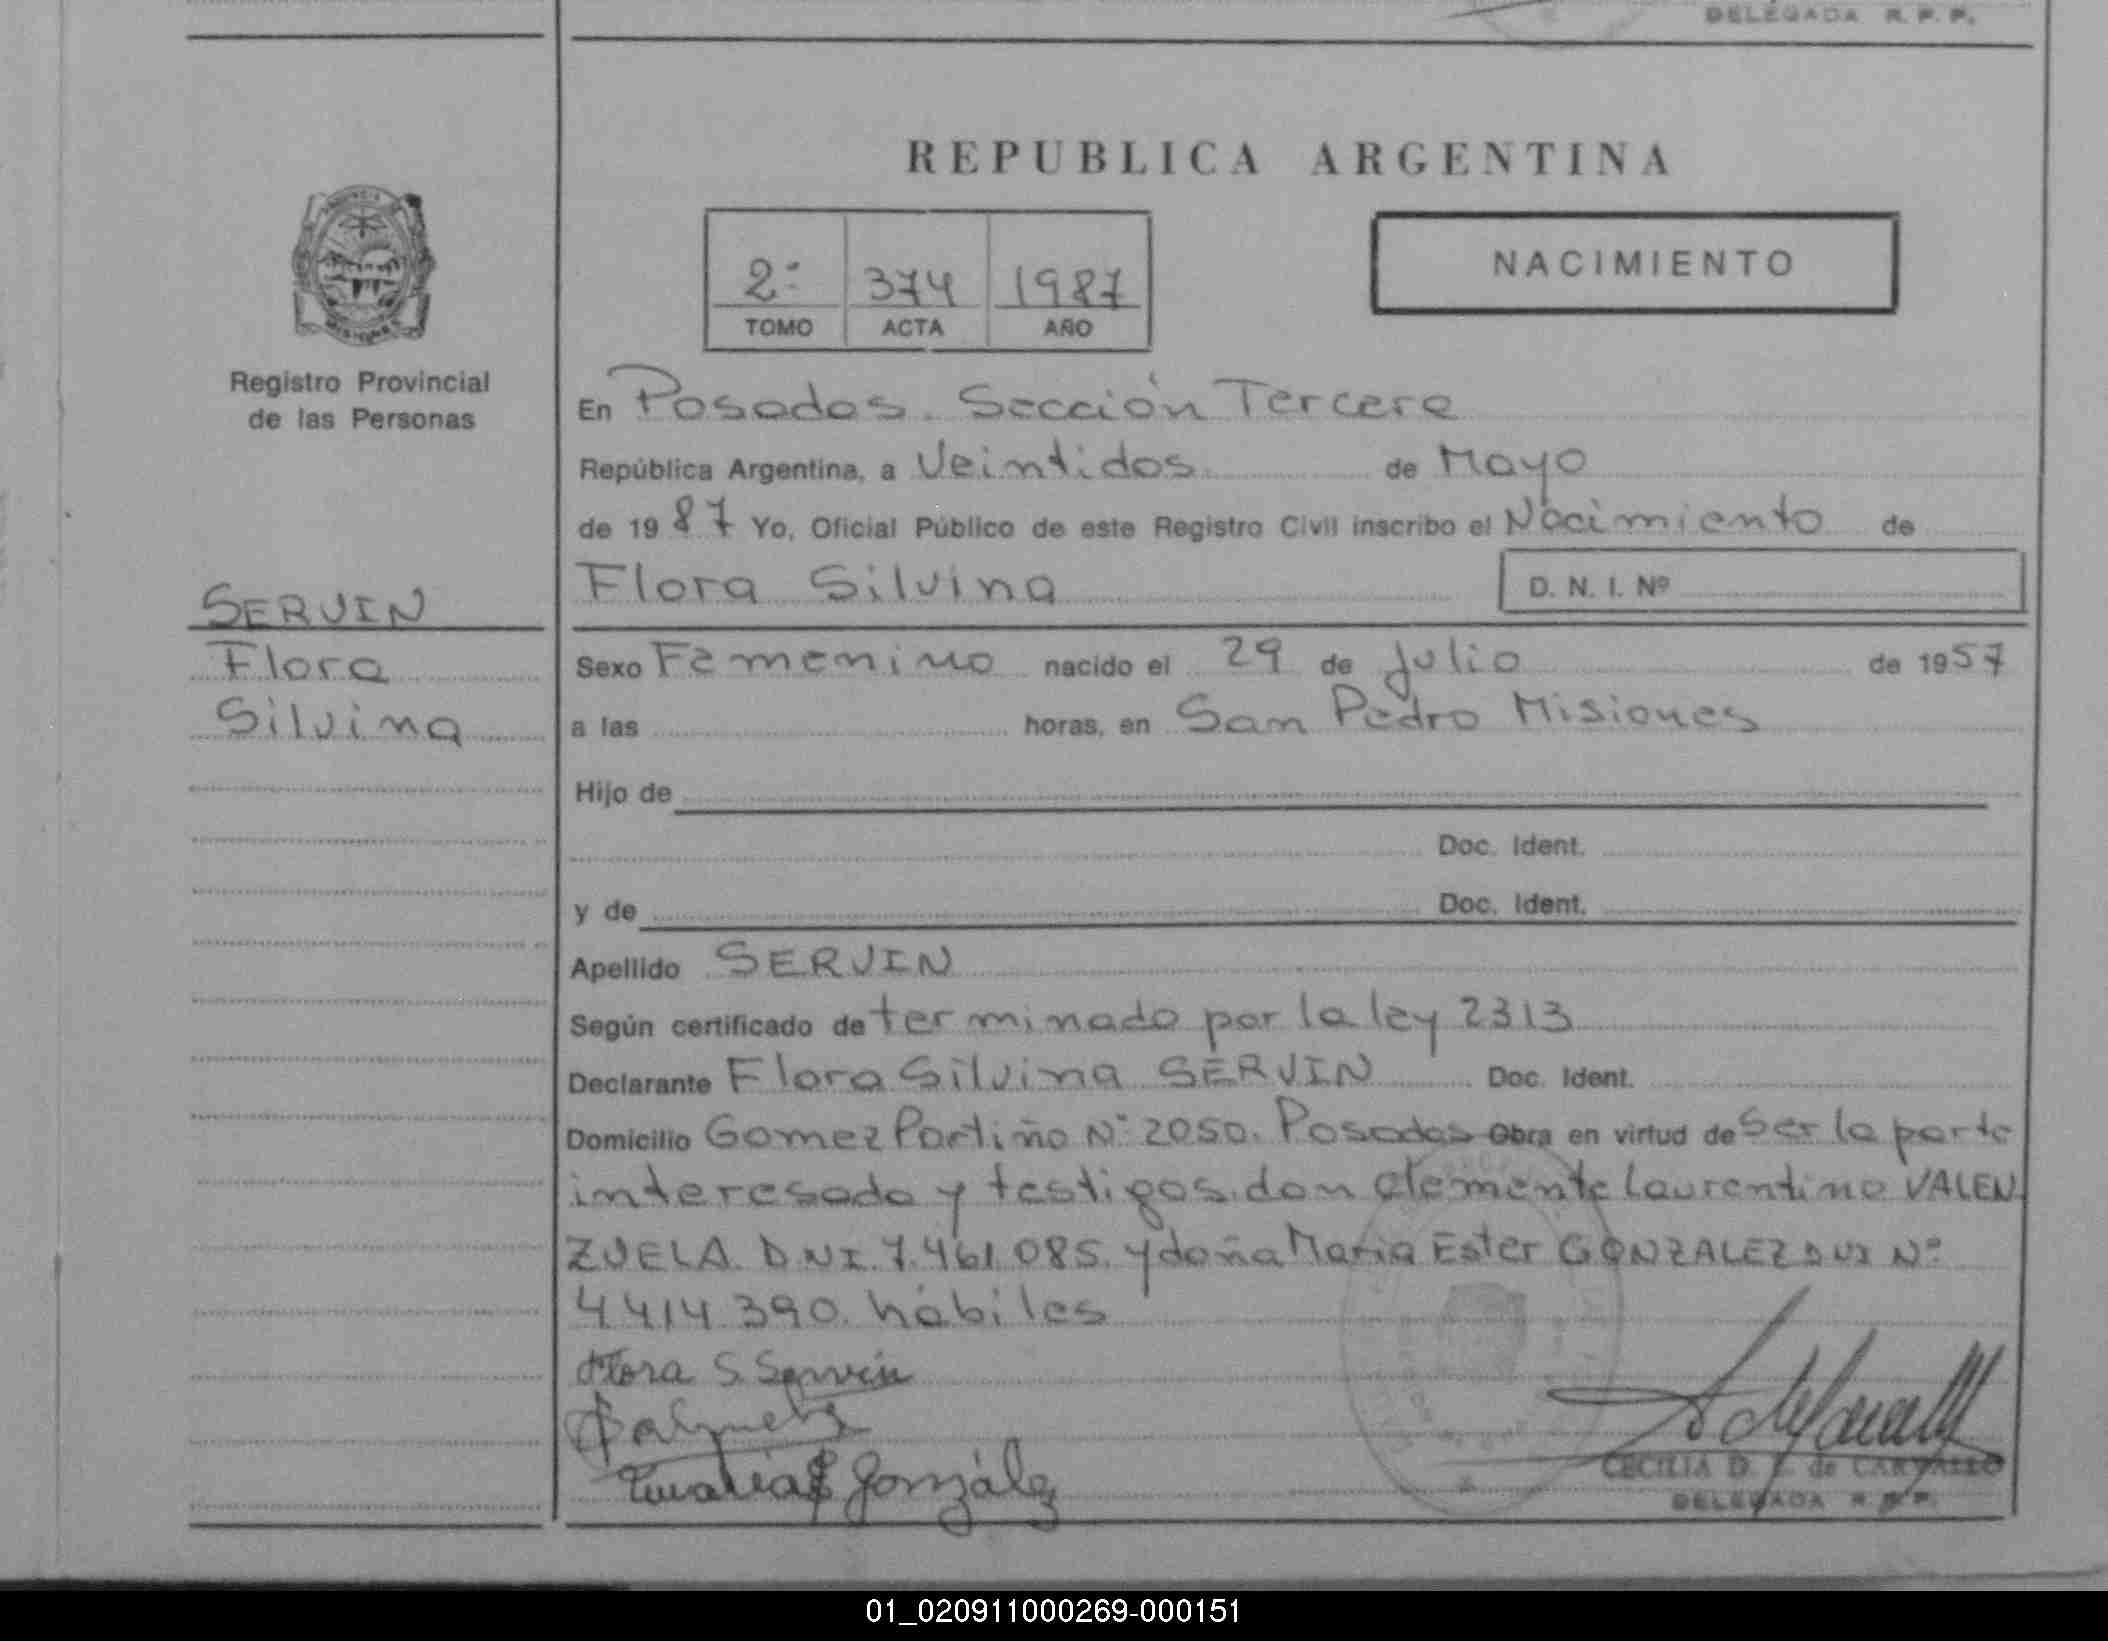 DELEGADA R. P. P.
REPUBLICA ARGENTINA
2º 374 1987
TOMO ACTA AÑO
NACIMIENTO
Registro Provincial
de las Personas
En Posadas. Sección Tercera
República Argentina, a Veintidos de Mayo
de 1987 Yo, Oficial Público de este Registro Civil inscribo el Nacimiento de
Flora Silvina D. N. I. Nº
SERVIN
Flora
Silvina
Sexo Femenino nacido el 29 de Julio de 1957
a las horas, en San Pedro Misiones
Hijo de
Doc. Ident.
y de Doc. Ident.
Apellido SERVIN
Según certificado determinado por la ley 2313
Declarante Flora Silvina SERVIN Doc. Ident.
Domicilio Gomez Portiño Nº 2050. Posadas Obra en virtud de ser la parte
interesada y testigos. don Clemente Laurentino VALEN
ZUELA. D.N.I. 7.461.085. y doña Maria Ester GONZALEZ DNI Nº
4414.390. hábiles
Flora S. Servin
Maria E González
CECILIA D. de CARVALLO
DELEGADA R. P. P.
01_020911000269-000151